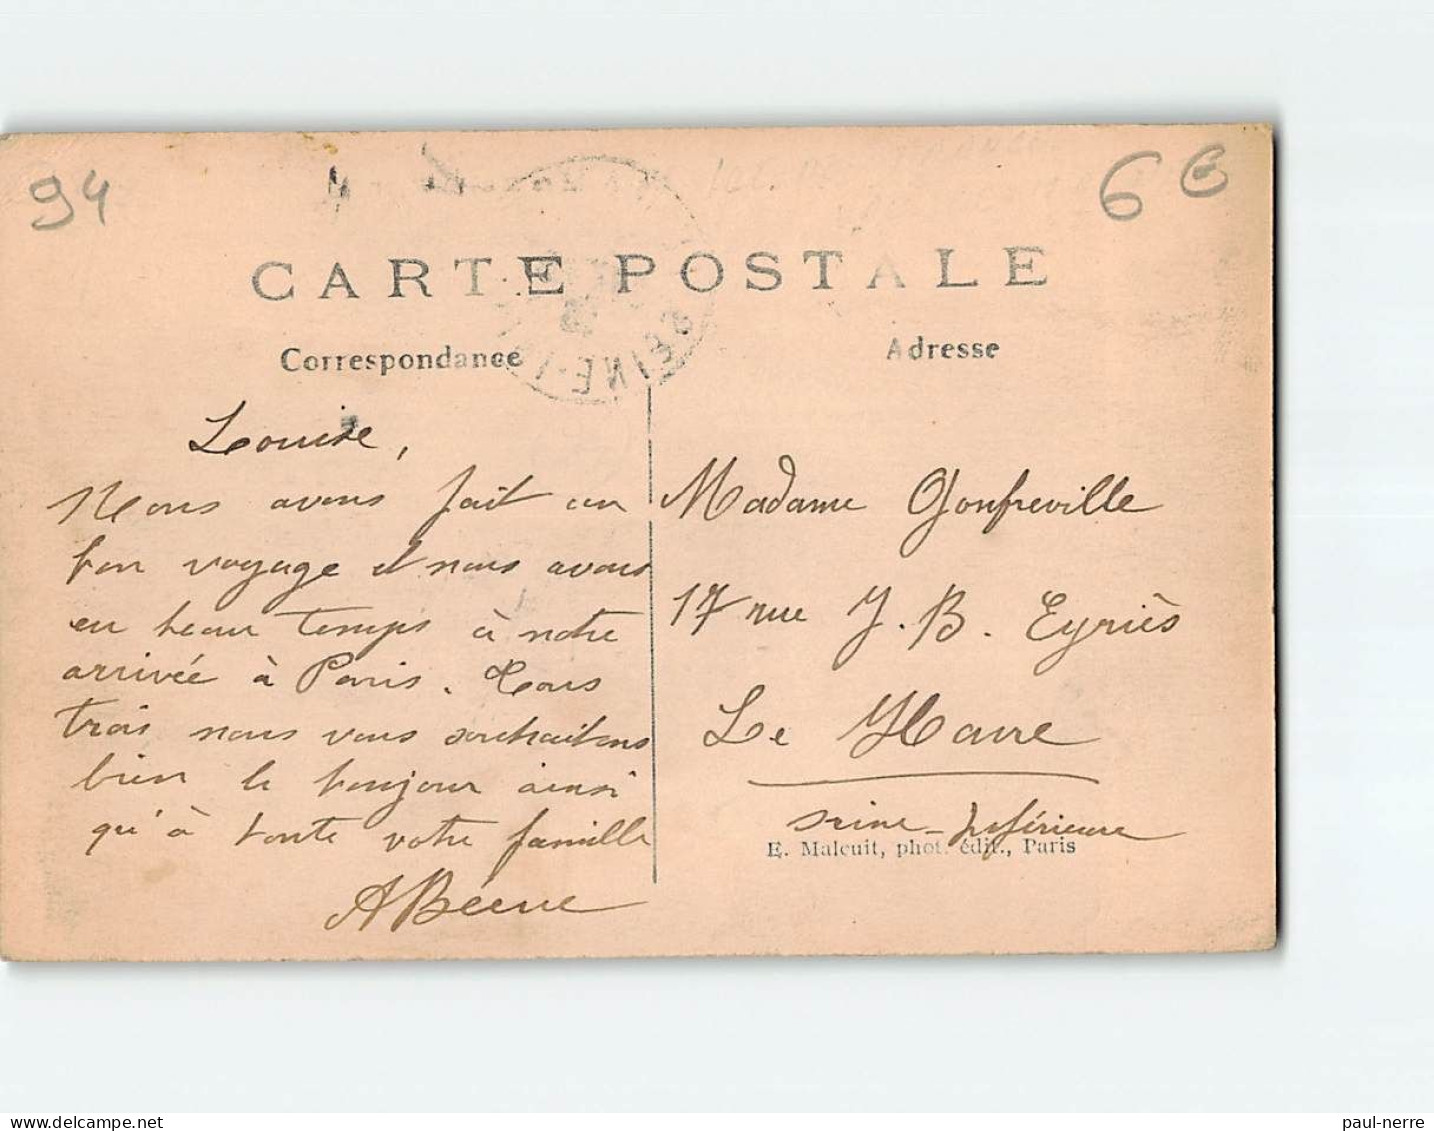 94
6€
CARTE POSTALE
Correspondance
Adresse
SEINE-I
Louise,
Nous avons fait un
bon voyage et nous avons
eu beau temps à notre
arrivée à Paris. Tous
trois nous vous souhaitons
bien le bonjour ainsi
qu'à toute votre famille
Madame Gonfreville
17 rue J. B. Eyriès
Le Havre
Seine-Inférieure
E. Malcuit, phot. édit., Paris
delcampe.net
paul-nerre